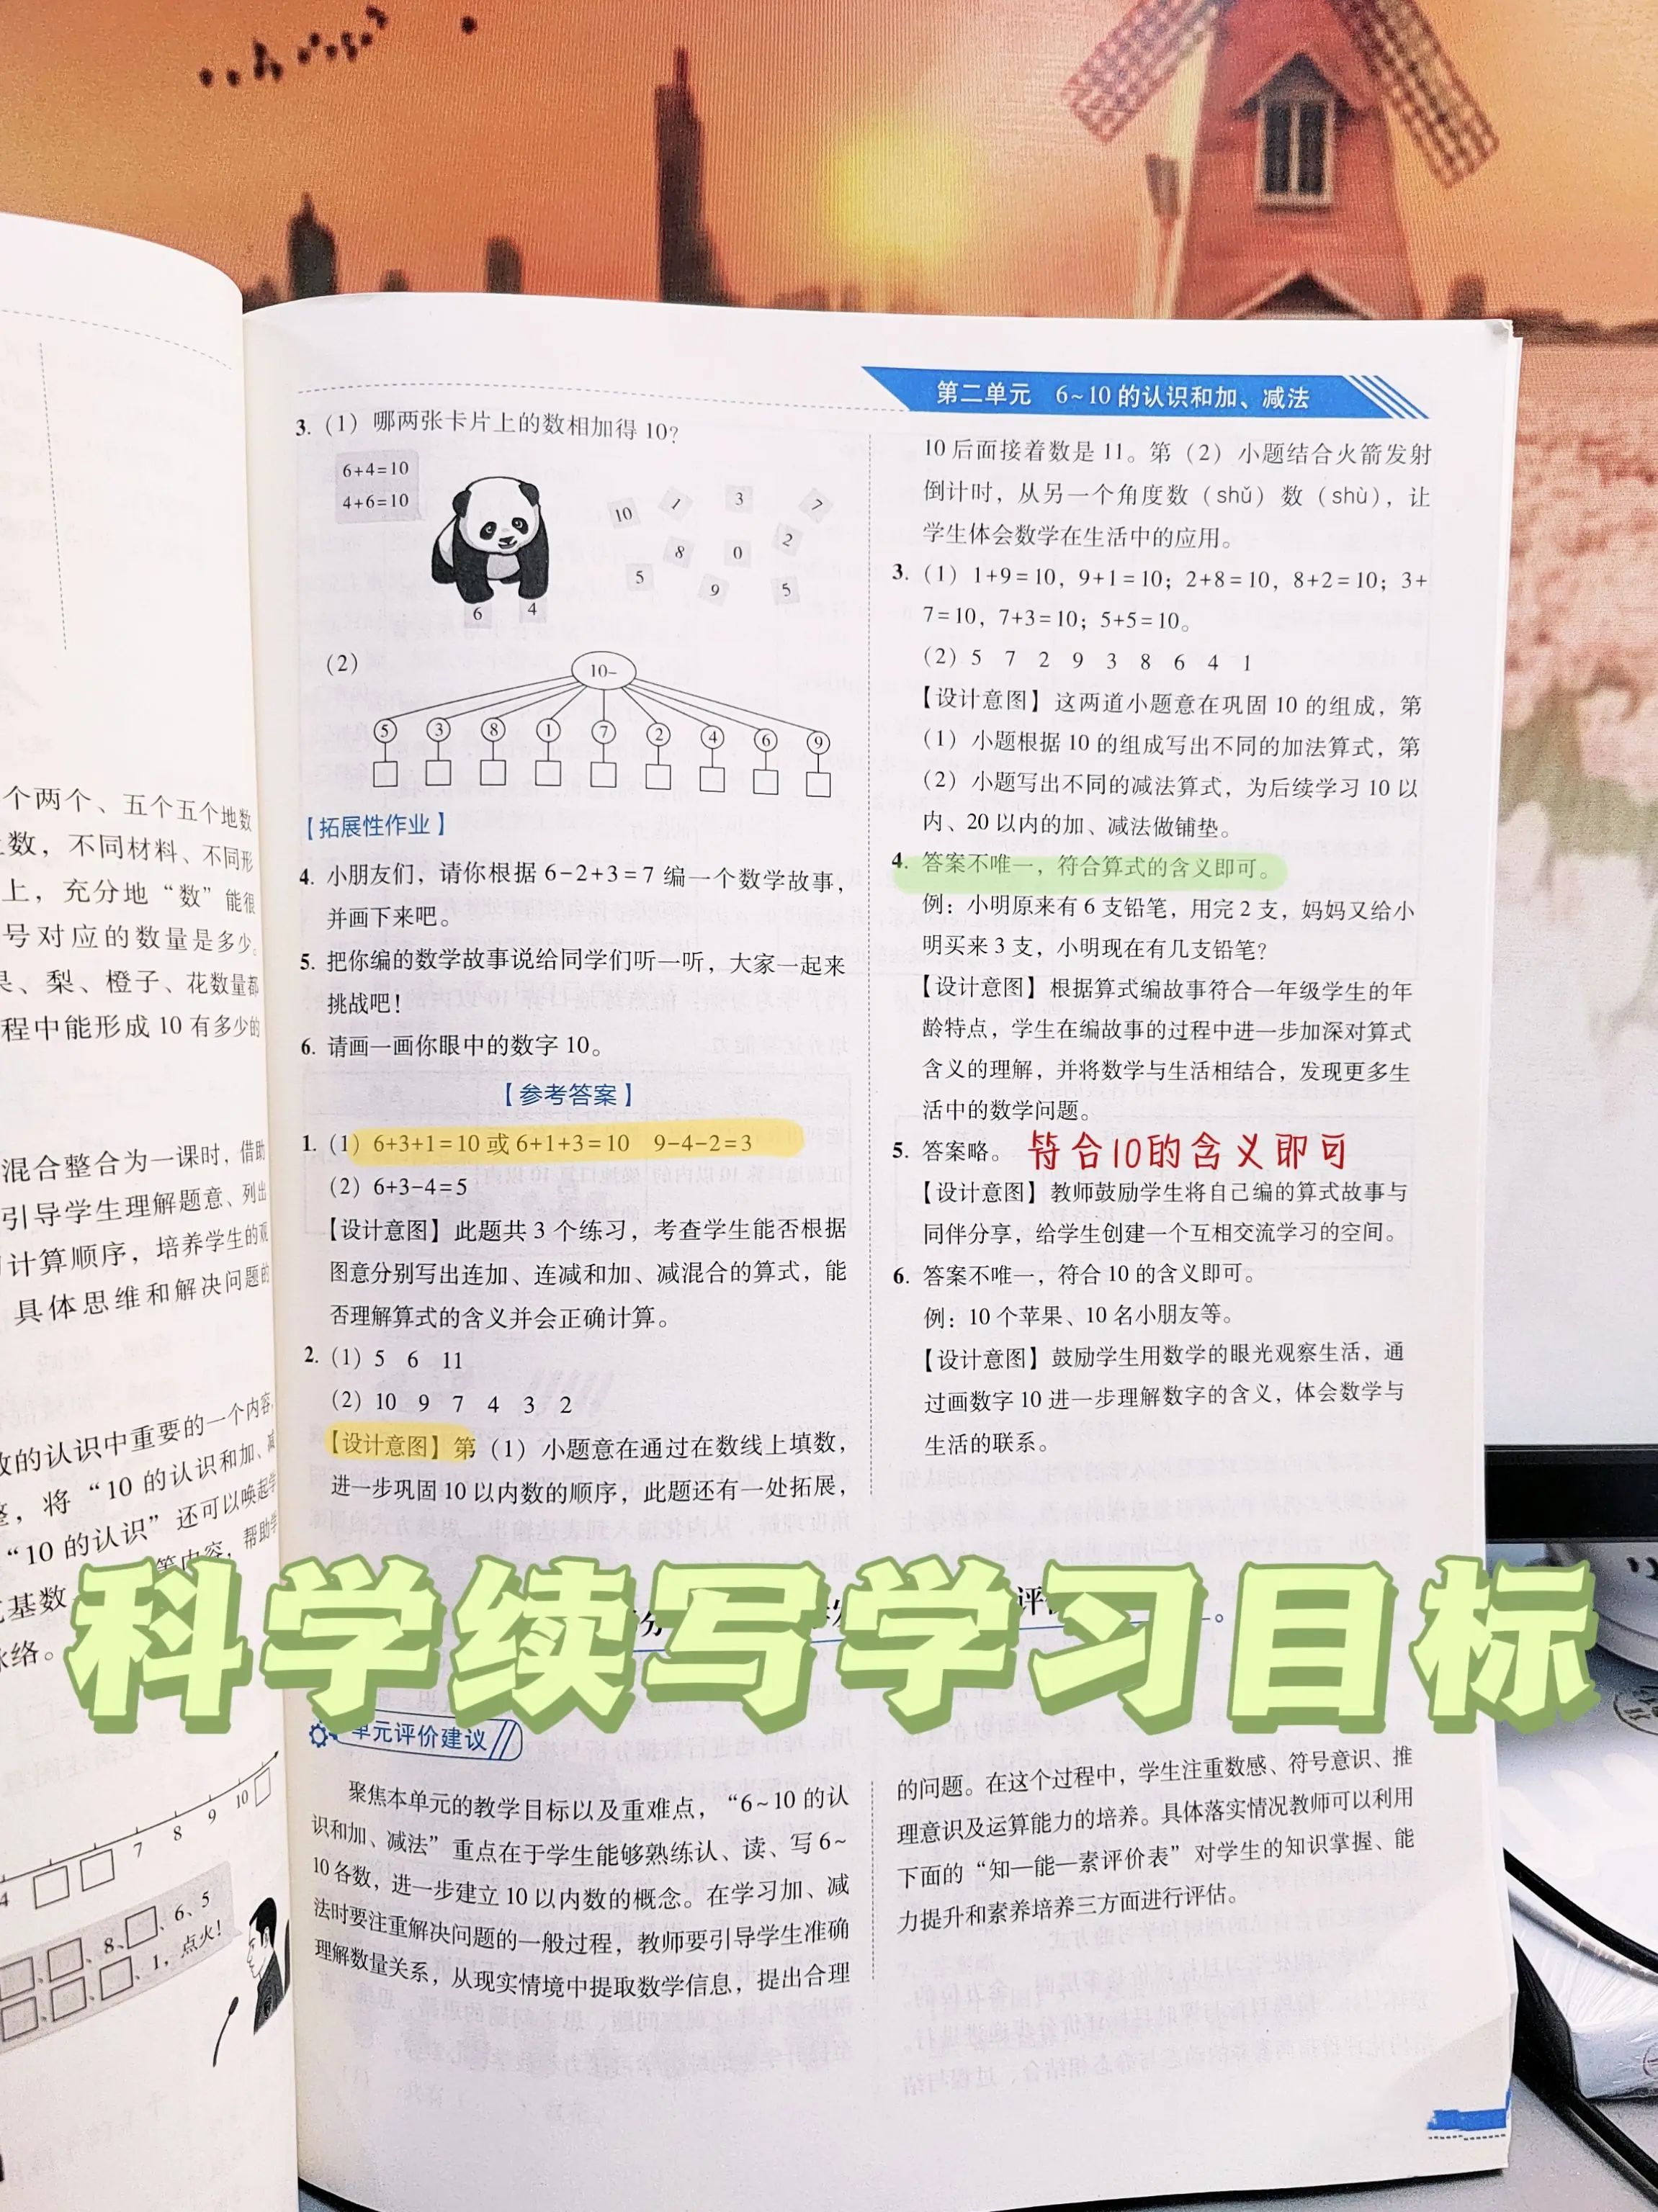 第二单元 6~10的认识和加、减法
3. (1) 哪两张卡片上的数相加得10?
6+4=10
4+6=10
10 1 3 7
8 0 2
5 9 5
6 4
(2)
10-
5 3 8 1 7 2 4 6 9
【拓展性作业】
4. 小朋友们，请你根据6-2+3=7编一个数学故事，
并画下来吧。
5. 把你编的数学故事说给同学们听一听，大家一起来
挑战吧！
6. 请画一画你眼中的数字10。
【参考答案】
1. (1) 6+3+1=10或6+1+3=10 9-4-2=3
(2) 6+3-4=5
【设计意图】此题共3个练习，考查学生能否根据
图意分别写出连加、连减和加、减混合的算式，能
否理解算式的含义并会正确计算。
2. (1) 5 6 11
(2) 10 9 7 4 3 2
【设计意图】第（1）小题意在通过在数线上填数，
进一步巩固10以内数的顺序，此题还有一处拓展，
10后面接着数是11。第（2）小题结合火箭发射
倒计时，从另一个角度数（shǔ）数（shù），让
学生体会数学在生活中的应用。
3. (1) 1+9=10，9+1=10；2+8=10，8+2=10；3+
7=10，7+3=10；5+5=10。
(2) 5 7 2 9 3 8 6 4 1
【设计意图】这两道小题意在巩固10的组成，第
（1）小题根据10的组成写出不同的加法算式，第
（2）小题写出不同的减法算式，为后续学习10以
内、20以内的加、减法做铺垫。
4. 答案不唯一，符合算式的含义即可。
例：小明原来有6支铅笔，用完2支，妈妈又给小
明买来3支，小明现在有几支铅笔？
【设计意图】根据算式编故事符合一年级学生的年
龄特点，学生在编故事的过程中进一步加深对算式
含义的理解，并将数学与生活相结合，发现更多生
活中的数学问题。
5. 答案略。 符合10的含义即可
【设计意图】教师鼓励学生将自己编的算式故事与
同伴分享，给学生创建一个互相交流学习的空间。
6. 答案不唯一，符合10的含义即可。
例：10个苹果、10名小朋友等。
【设计意图】鼓励学生用数学的眼光观察生活，通
过画数字10进一步理解数字的含义，体会数学与
生活的联系。
科学续写学习目标
单元评价建议
聚焦本单元的教学目标以及重难点，“6~10的认
识和加、减法”重点在于学生能够熟练认、读、写6~
10各数，进一步建立10以内数的概念。在学习加、减
法时要注重解决问题的一般过程，教师要引导学生准确
理解数量关系，从现实情境中提取数学信息，提出合理
的问题。在这个过程中，学生注重数感、符号意识、推
理意识及运算能力的培养。具体落实情况教师可以利用
下面的“知—能—素评价表”对学生的知识掌握、能
力提升和素养培养三方面进行评估。
个两个、五个五个地数
数，不同材料、不同形
上，充分地“数”能很
号对应的数量是多少。
梨、橙子、花数量都
程中能形成10有多少的
混合整合为一课时，借助
引导学生理解题意、列出
计算顺序，培养学生的观
具体思维和解决问题的
的认识中重要的一个内容，
将“10的认识和加、减
“10的认识”还可以唤起学
等内容，帮助学
基数
络。
4 7 8 9 10
8、 、6、5
、1，点火！